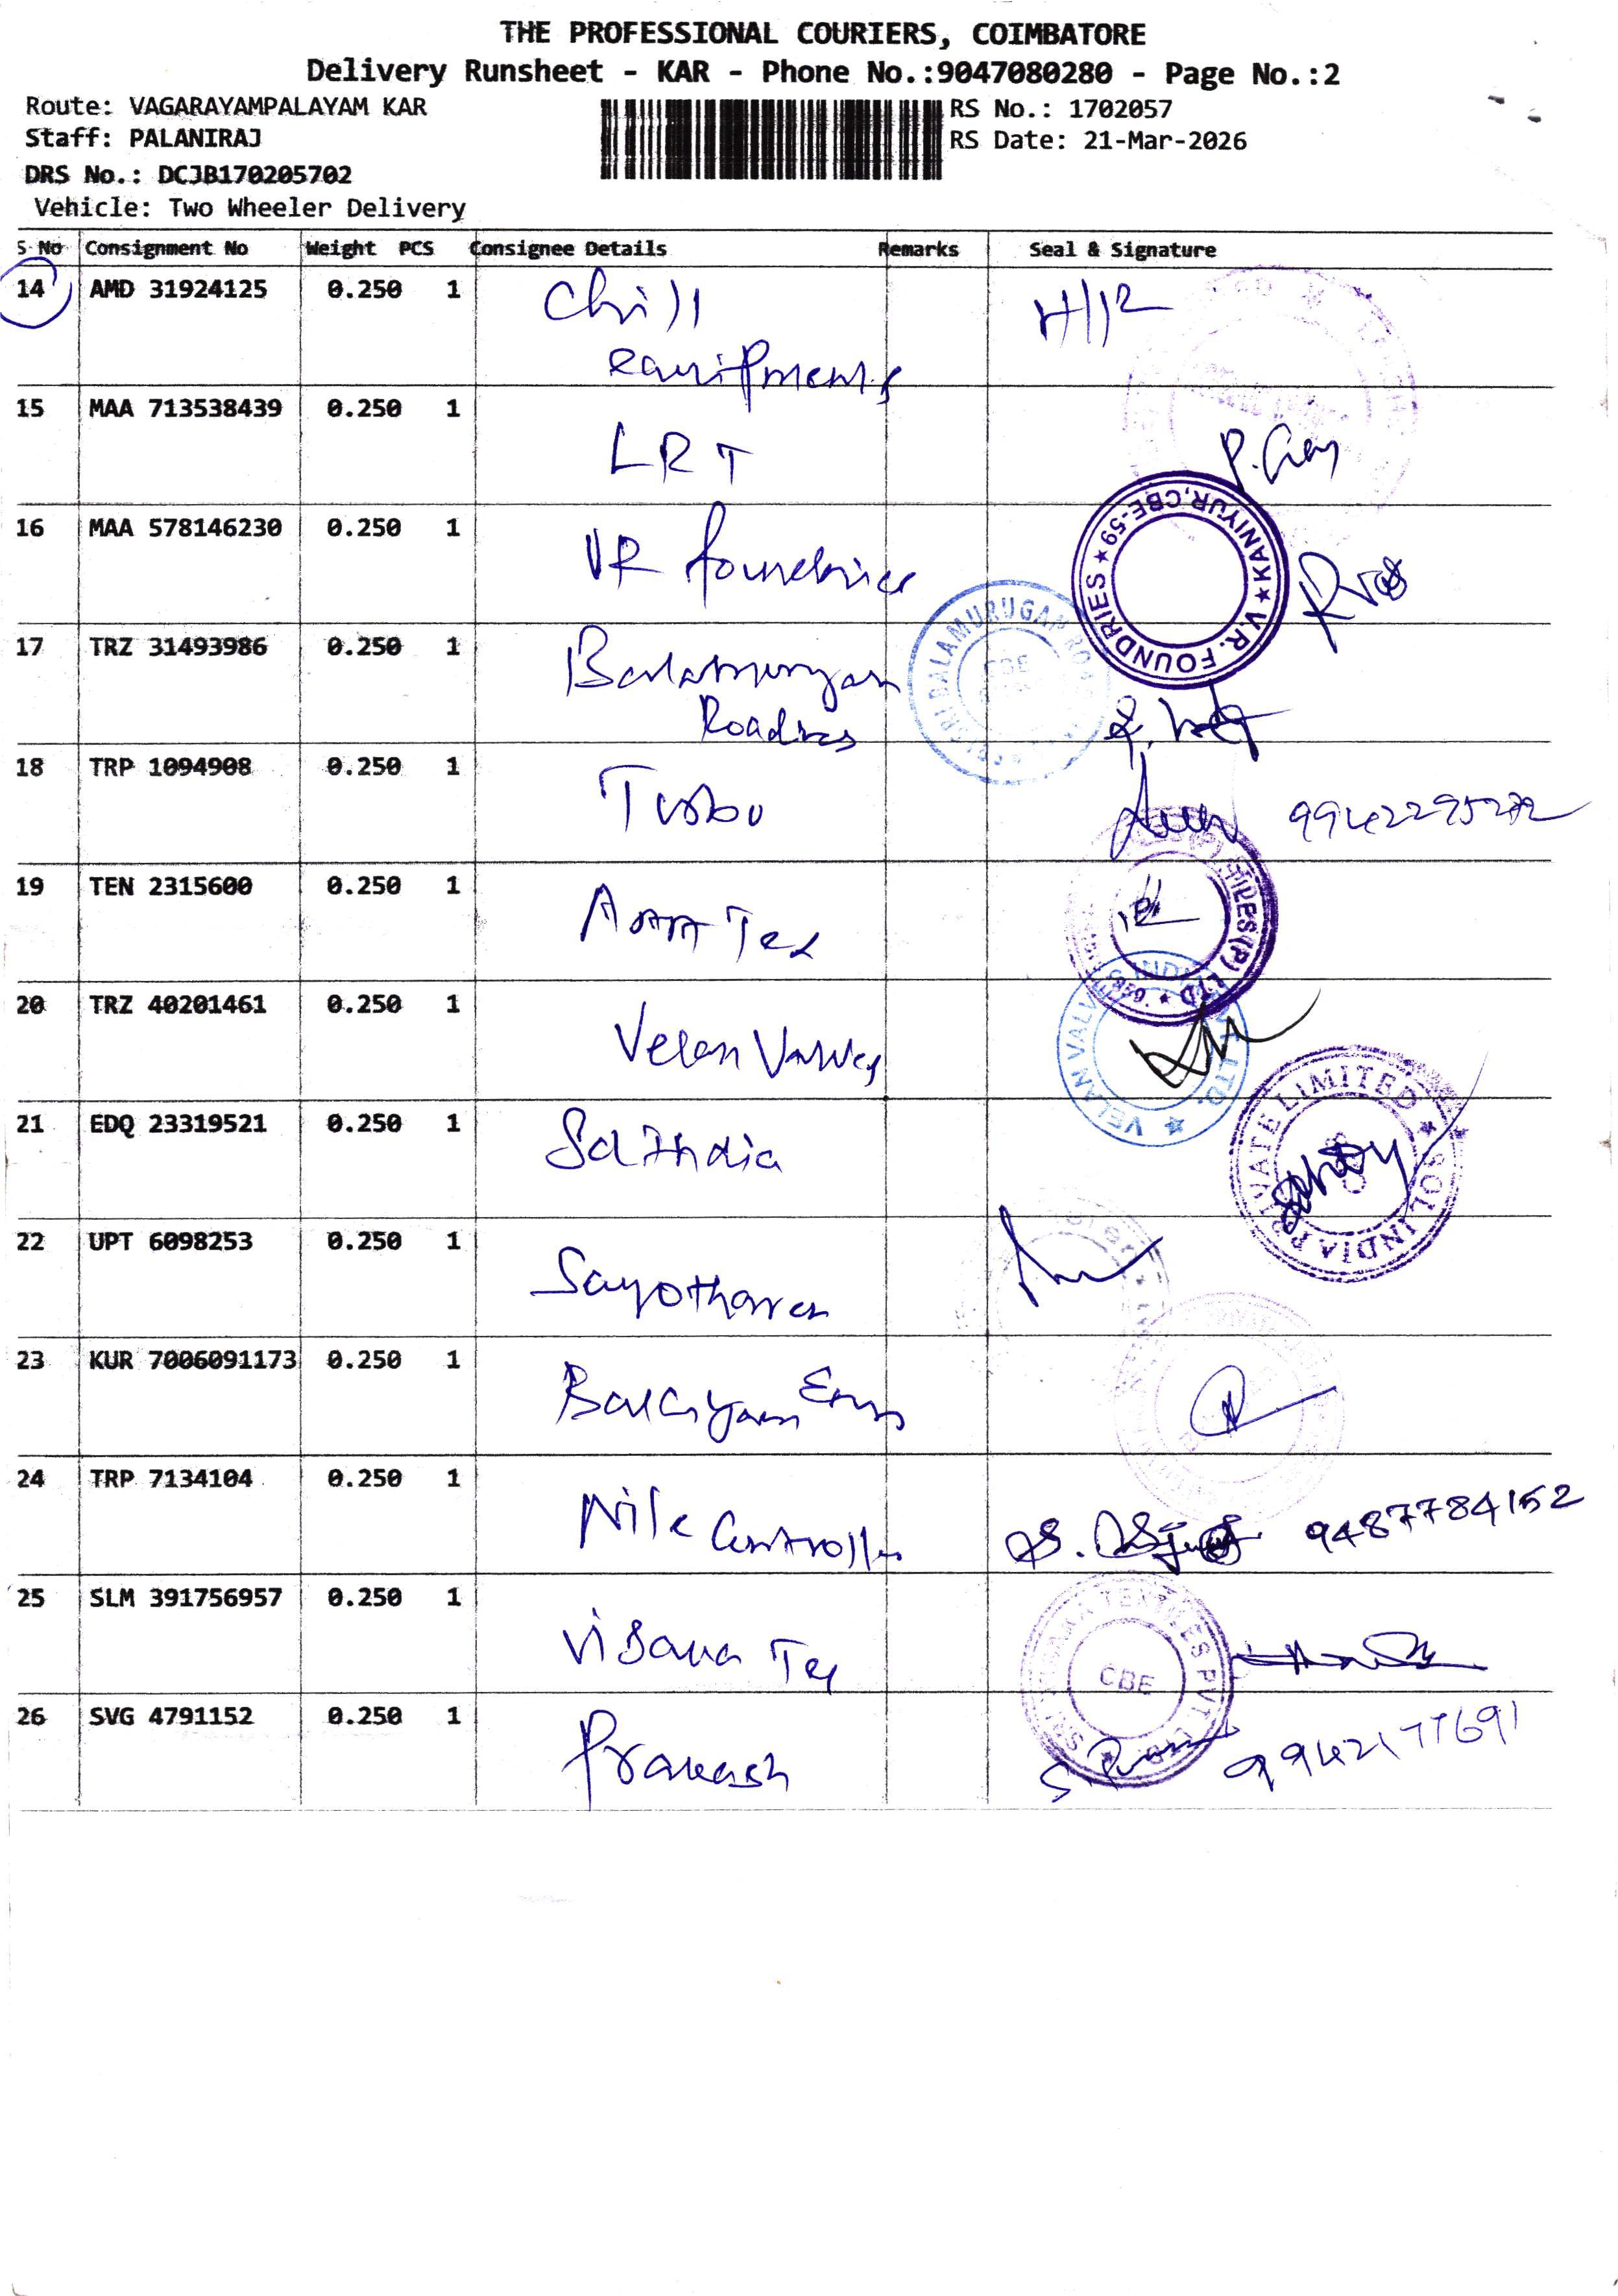 THE PROFESSIONAL COURIERS, COIMBATORE
Delivery Runsheet - KAR - Phone No.:9047080280 - Page No.:2
Route: VAGARAYAMPALAYAM KAR
RS No.: 1702057
Staff: PALANIRAJ
RS Date: 21-Mar-2026
DRS No.: DCJB170205702
Vehicle: Two Wheeler Delivery
S No Consignment No Weight PCS Consignee Details Remarks Seal & Signature
14 AMD 31924125 0.250 1 Chill
15 MAA 713538439 0.250 1 LRT
16 MAA 578146230 0.250 1 VR
V.R. FOUNDRIES ★ KANIYUR, CBE-59 ★
17 TRZ 31493986 0.250 1
SRI BALAMURUGAN
CBE
18 TRP 1094908 0.250 1 Turbo
19 TEN 2315600 0.250 1
TILES (P) LTD
20 TRZ 40201461 0.250 1 Velan Valves
VELAN VALVES INDIA LTD. ★
21 EDQ 23319521 0.250 1 Sol India
SOL INDIA PRIVATE LIMITED ★
22 UPT 6098253 0.250 1
23 KUR 7006091173 0.250 1
24 TRP 7134104 0.250 1 Nile Controlls 9487784152
25 SLM 391756957 0.250 1
TEXTILES PVT
CBE
26 SVG 4791152 0.250 1 Prakash